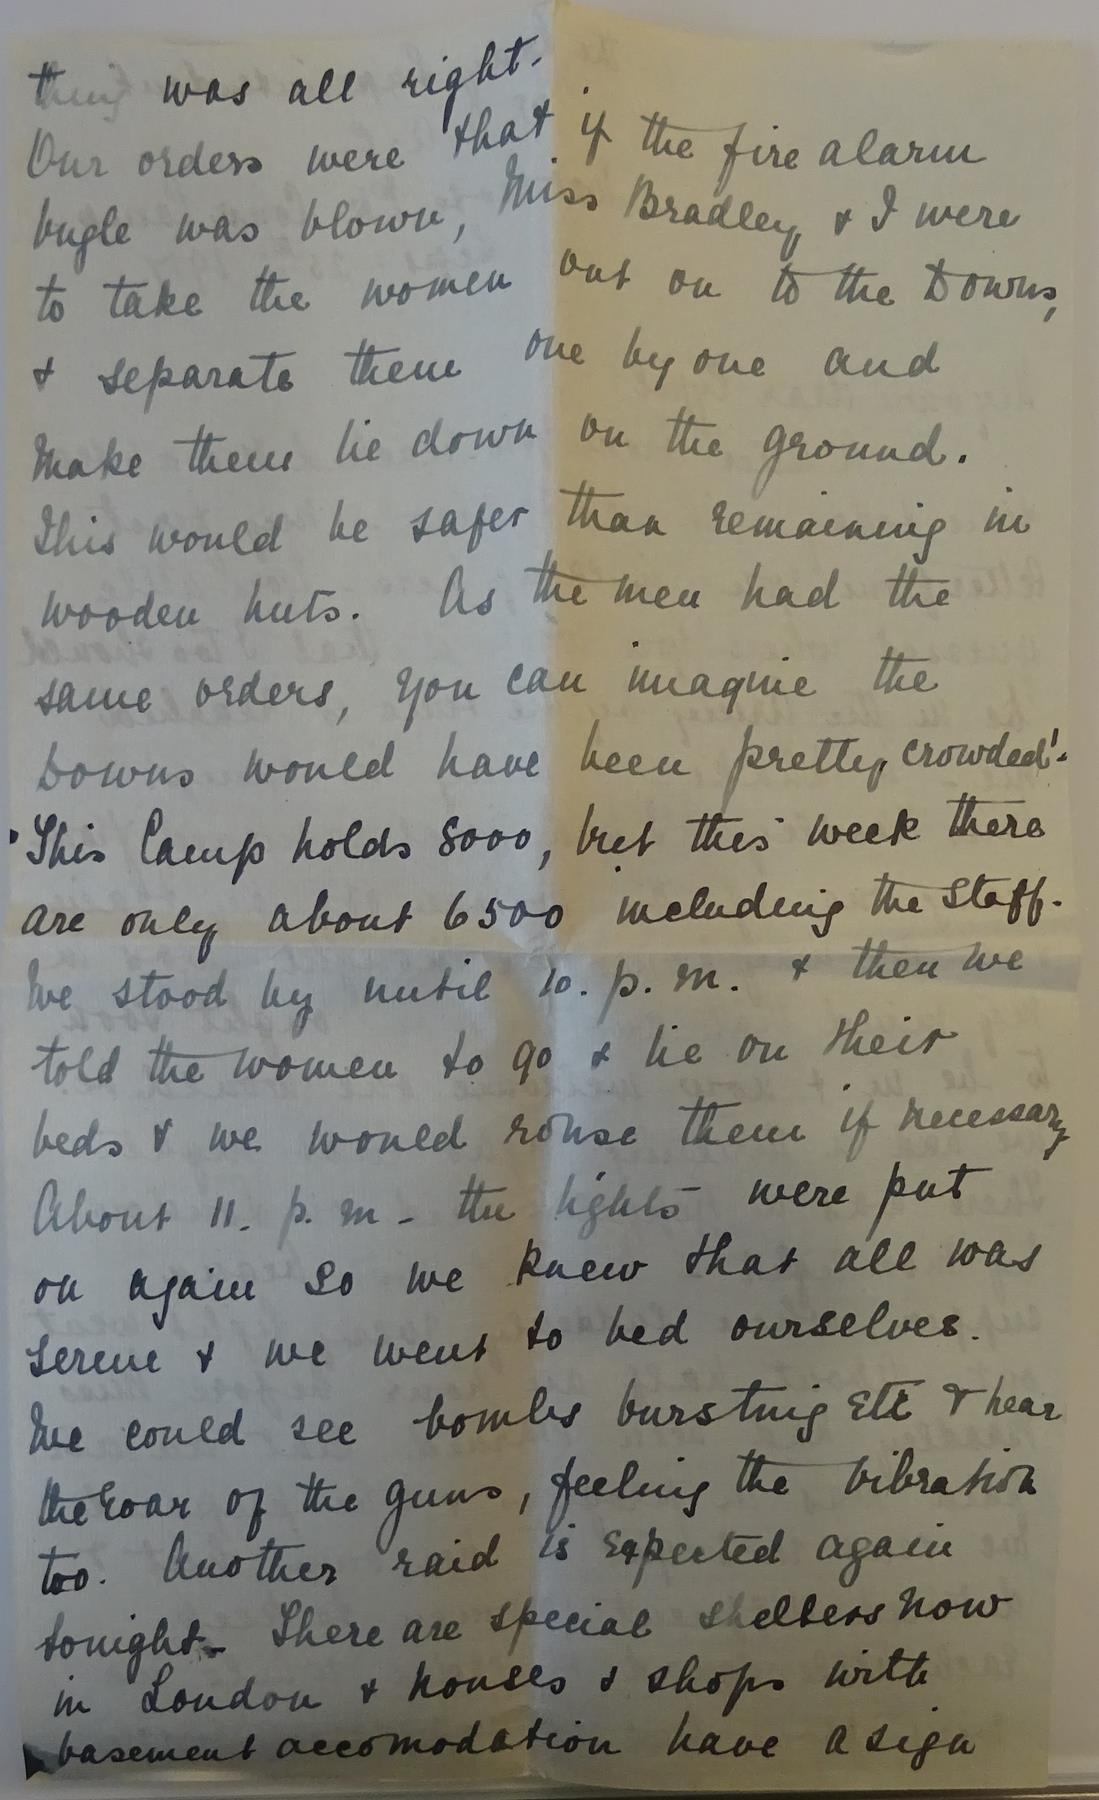 thing was all right.
Our orders were that if the fire alarm
bugle was blown, Miss Bradley & I were
to take the women out on to the Downs,
& separate them one by one and
make them lie down on the ground.
This would be safer than remaining in
wooden huts. As the men had the
same orders, you can imagine the
Downs would have been pretty crowded!-
This Camp holds 8000, but this week there
are only about 6500 including the Staff.
We stood by until 10. p. m. & then we
told the women to go & lie on their
beds & we would rouse them if necessary
About 11. p. m - the lights were put
on again so we knew that all was
serene & we went to bed ourselves.
We could see bombs bursting etc & hear
the roar of the guns, feeling the vibration
too. Another raid is expected again
tonight- There are special shelters now
in London & houses & shops with
basement accomodation have a sign